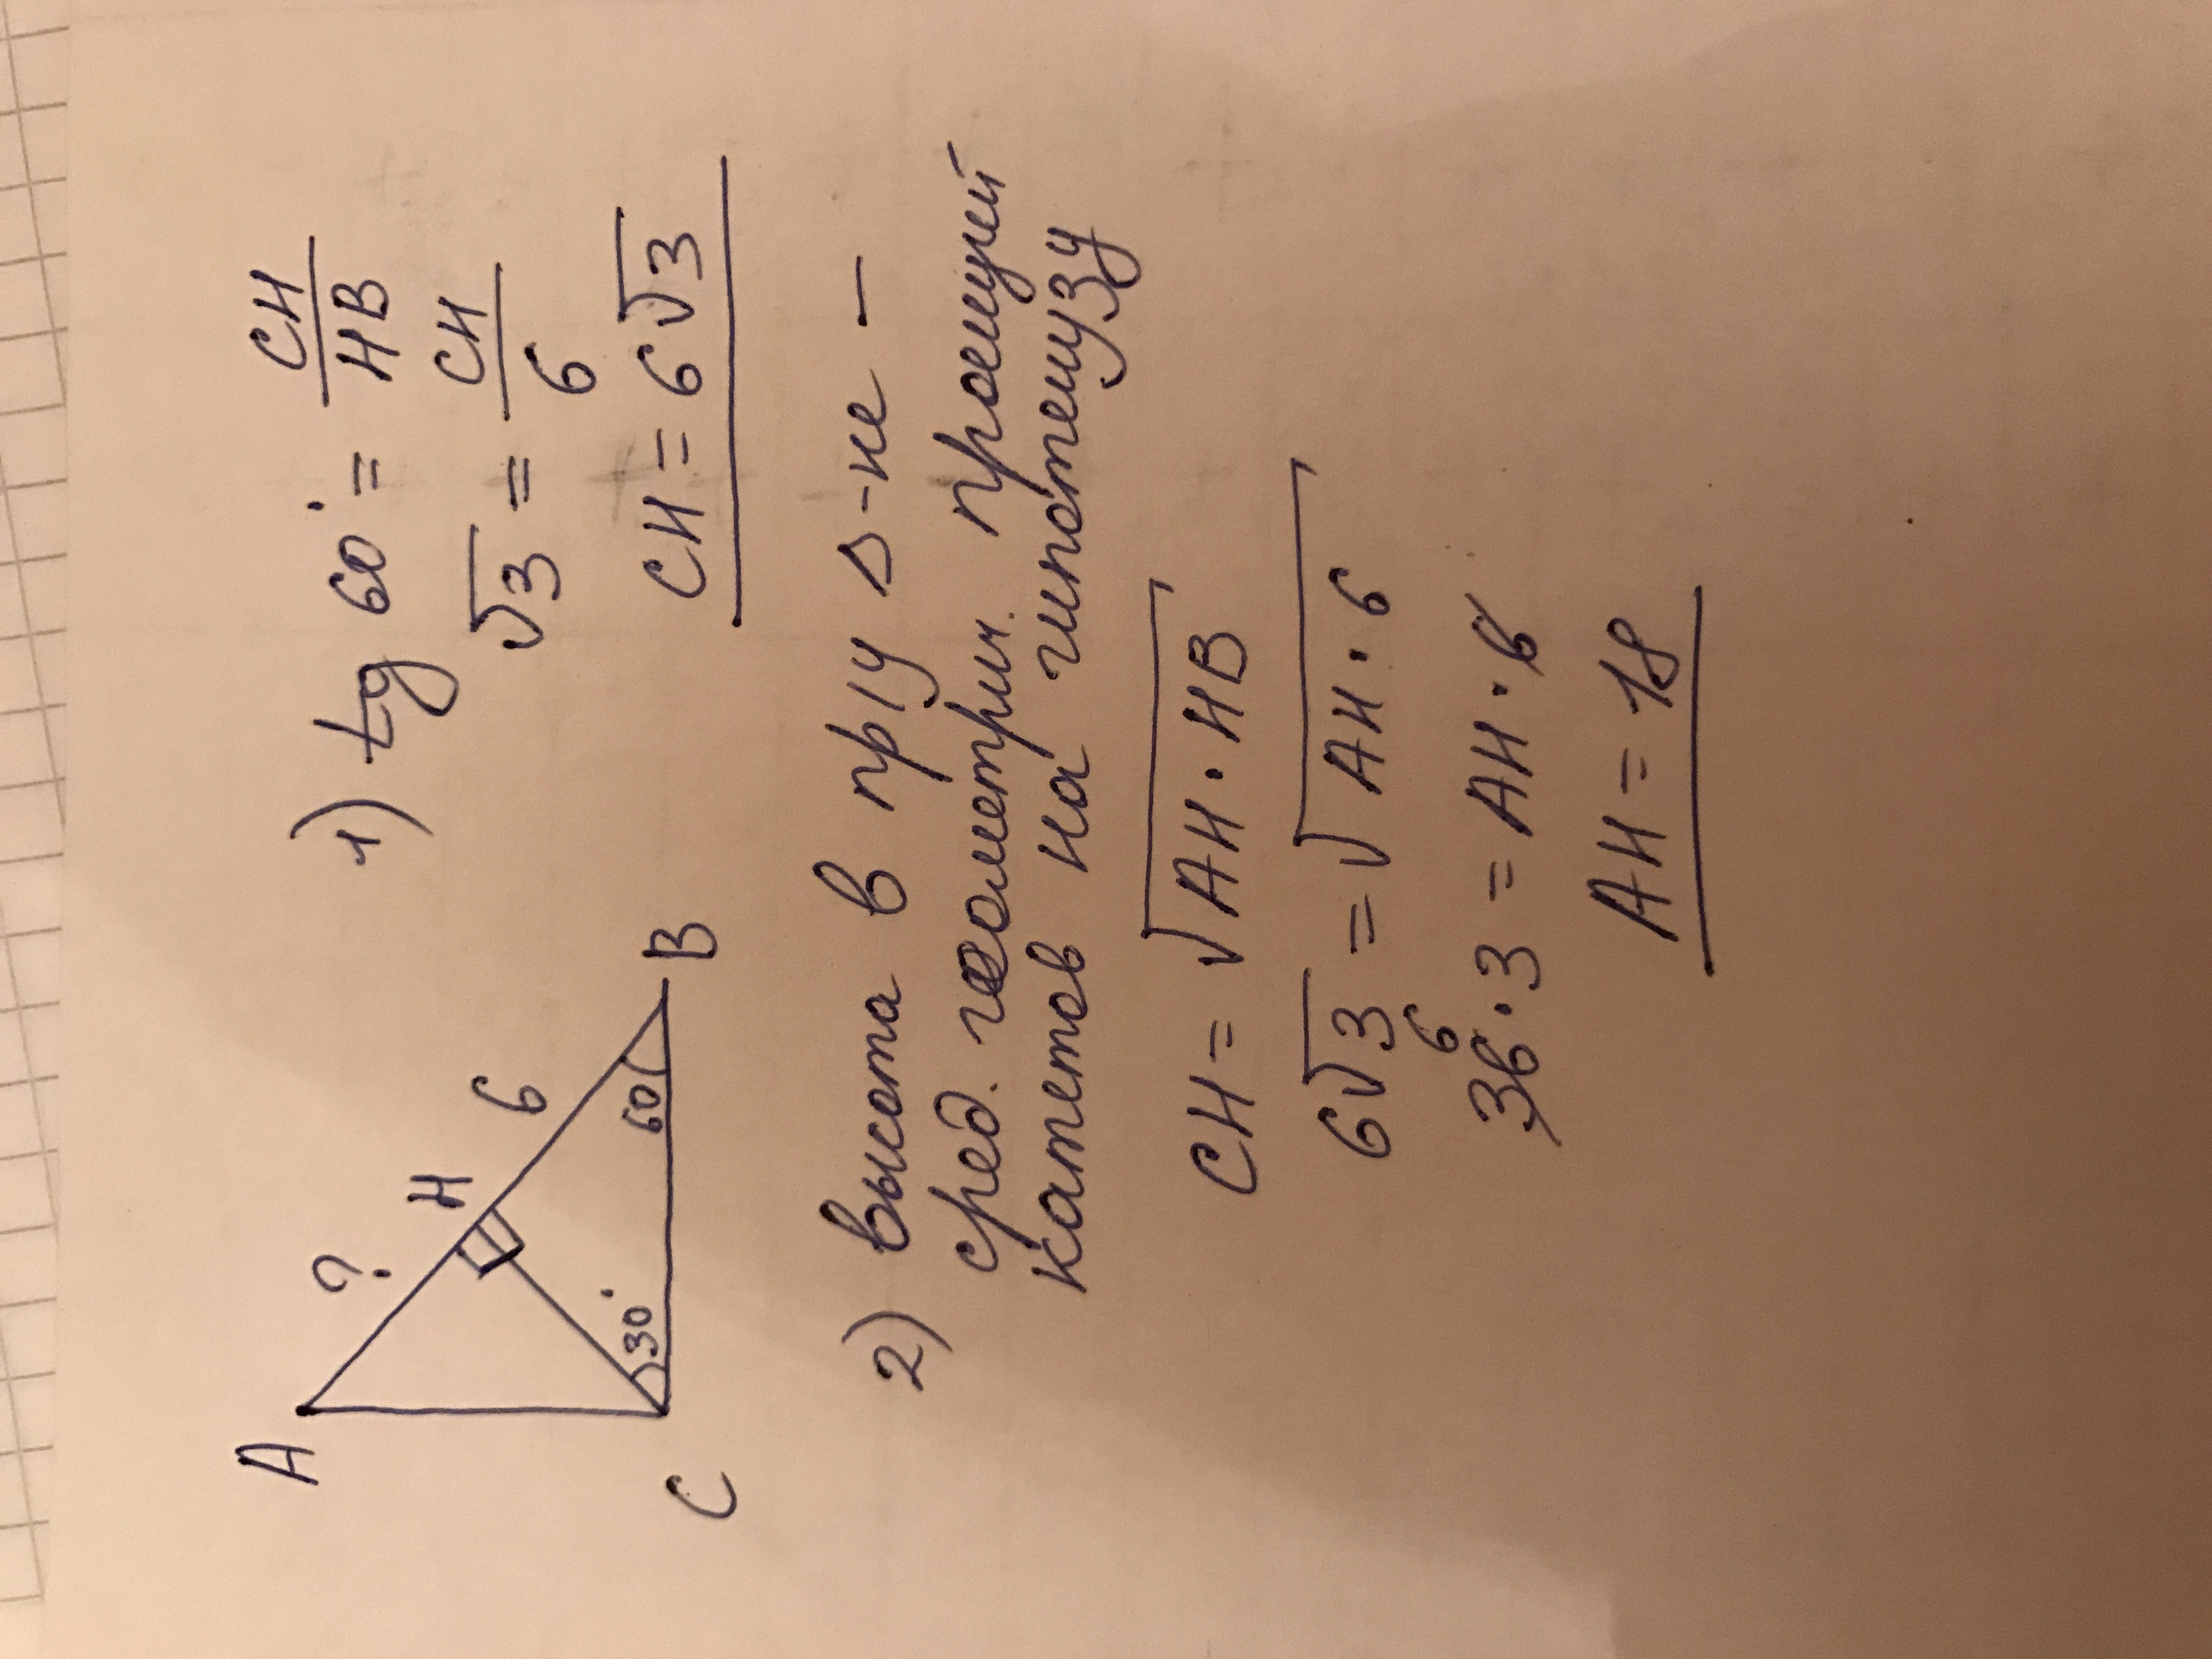 A
?
H
6
30°
60
C
B
1) tg 60° = CH/HB
√3 = CH/6
CH = 6√3
2) высота в пр/у Δ-ке –
сред. геометрич. проекций
катетов на гипотенузу
CH = √AH·HB
6√3 = √AH·6
6
36·3 = AH·6
AH = 18